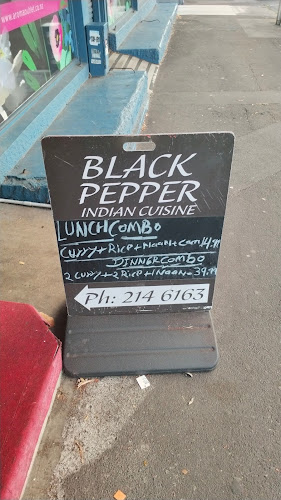 BLACK
PEPPER
INDIAN CUISINE
LUNCH COMBO
Curry + Rice + Naan
DINNER COMBO
2 Curry + 2 Rice + Naan - 39.99
Ph: 214 6163